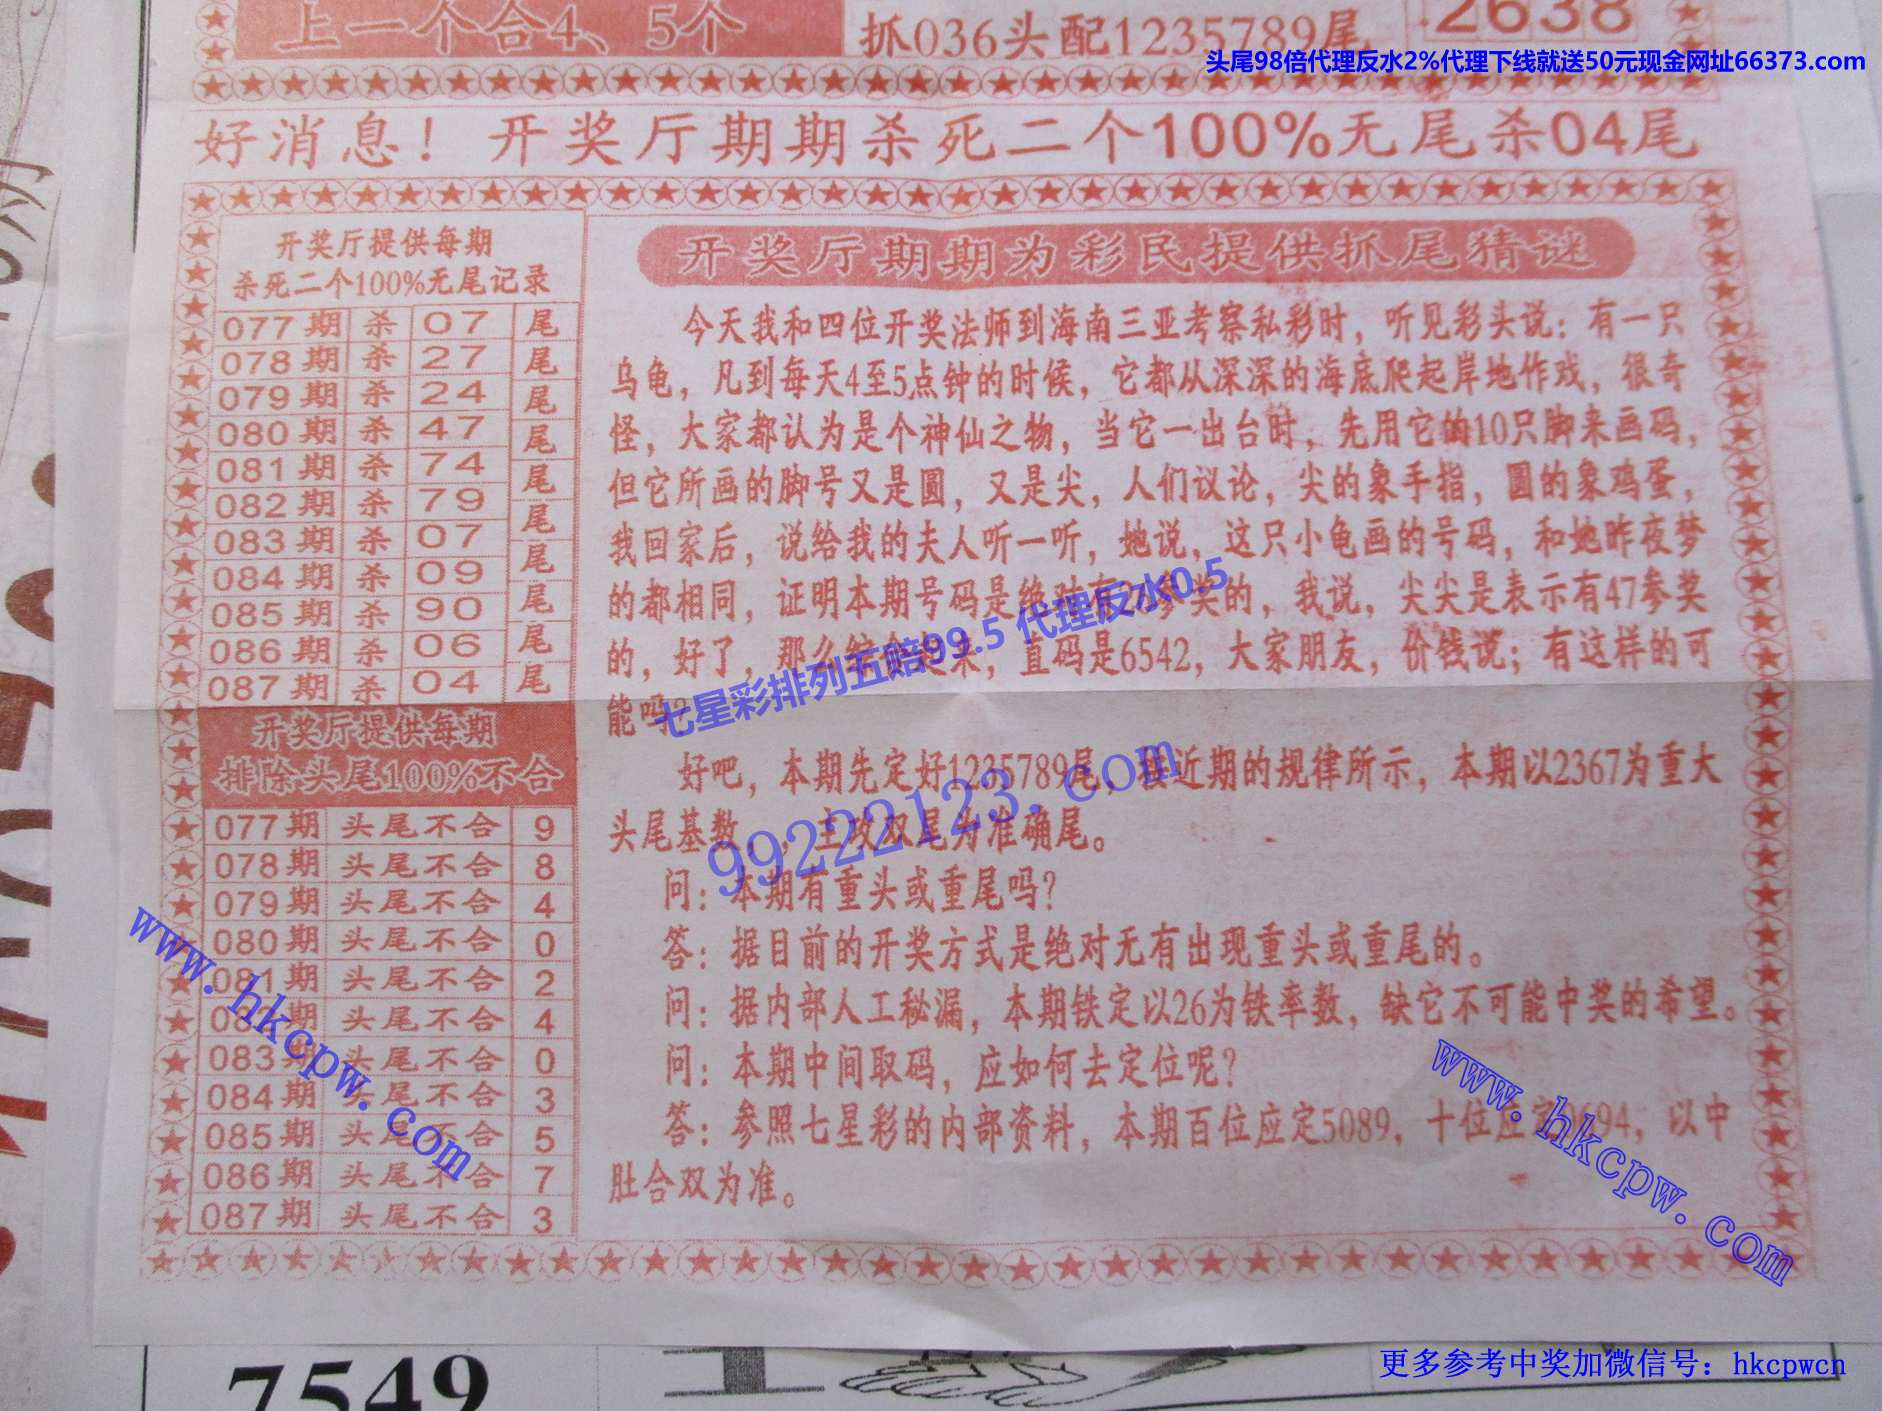 上一个合4、5个
抓036头配1235789尾
2638
头尾98倍代理反水2%代理下线就送50元现金网址66373.com
好消息！开奖厅期期杀死二个100%无尾杀04尾
开奖厅提供每期
杀死二个100%无尾记录
077期 杀 07 尾
078期 杀 27 尾
079期 杀 24 尾
080期 杀 47 尾
081期 杀 74 尾
082期 杀 79 尾
083期 杀 07 尾
084期 杀 09 尾
085期 杀 90 尾
086期 杀 06 尾
087期 杀 04 尾
开奖厅提供每期
排除头尾100%不合
077期 头尾不合 9
078期 头尾不合 8
079期 头尾不合 4
080期 头尾不合 0
081期 头尾不合 2
082期 头尾不合 4
083期 头尾不合 0
084期 头尾不合 3
085期 头尾不合 5
086期 头尾不合 7
087期 头尾不合 3
开奖厅期期为彩民提供抓尾猜谜
今天我和四位开奖法师到海南三亚考察私彩时，听见彩头说：有一只
乌龟，凡到每天4至5点钟的时候，它都从深深的海底爬起岸地作戏，很奇
怪，大家都认为是个神仙之物，当它一出台时，先用它的10只脚来画码，
但它所画的脚号又是圆，又是尖，人们议论，尖的象手指，圆的象鸡蛋，
我回家后，说给我的夫人听一听，她说，这只小龟画的号码，和她昨夜梦
的都相同，证明本期号码是绝对有2参奖的，我说，尖尖是表示有47参奖
的，好了，那么 来，直码是6542，大家朋友，价钱说；有这样的可
能吗？
好吧，本期先定好1235789尾，接近期的规律所示，本期以2367为重大
头尾基数，，主攻双尾为准确尾。
问：本期有重头或重尾吗？
答：据目前的开奖方式是绝对无有出现重头或重尾的。
问：据内部人工秘漏，本期铁定以26为铁率数，缺它不可能中奖的希望。
问：本期中间取码，应如何去定位呢？
答：参照七星彩的内部资料，本期百位应定5089，十位应定 694，以中
肚合双为准。
七星彩排列五赔99.5 代理反水0.5
99222123.com
www.hkcpw.com
www.hkcpw.com
7549
更多参考中奖加微信号：hkcpwcn